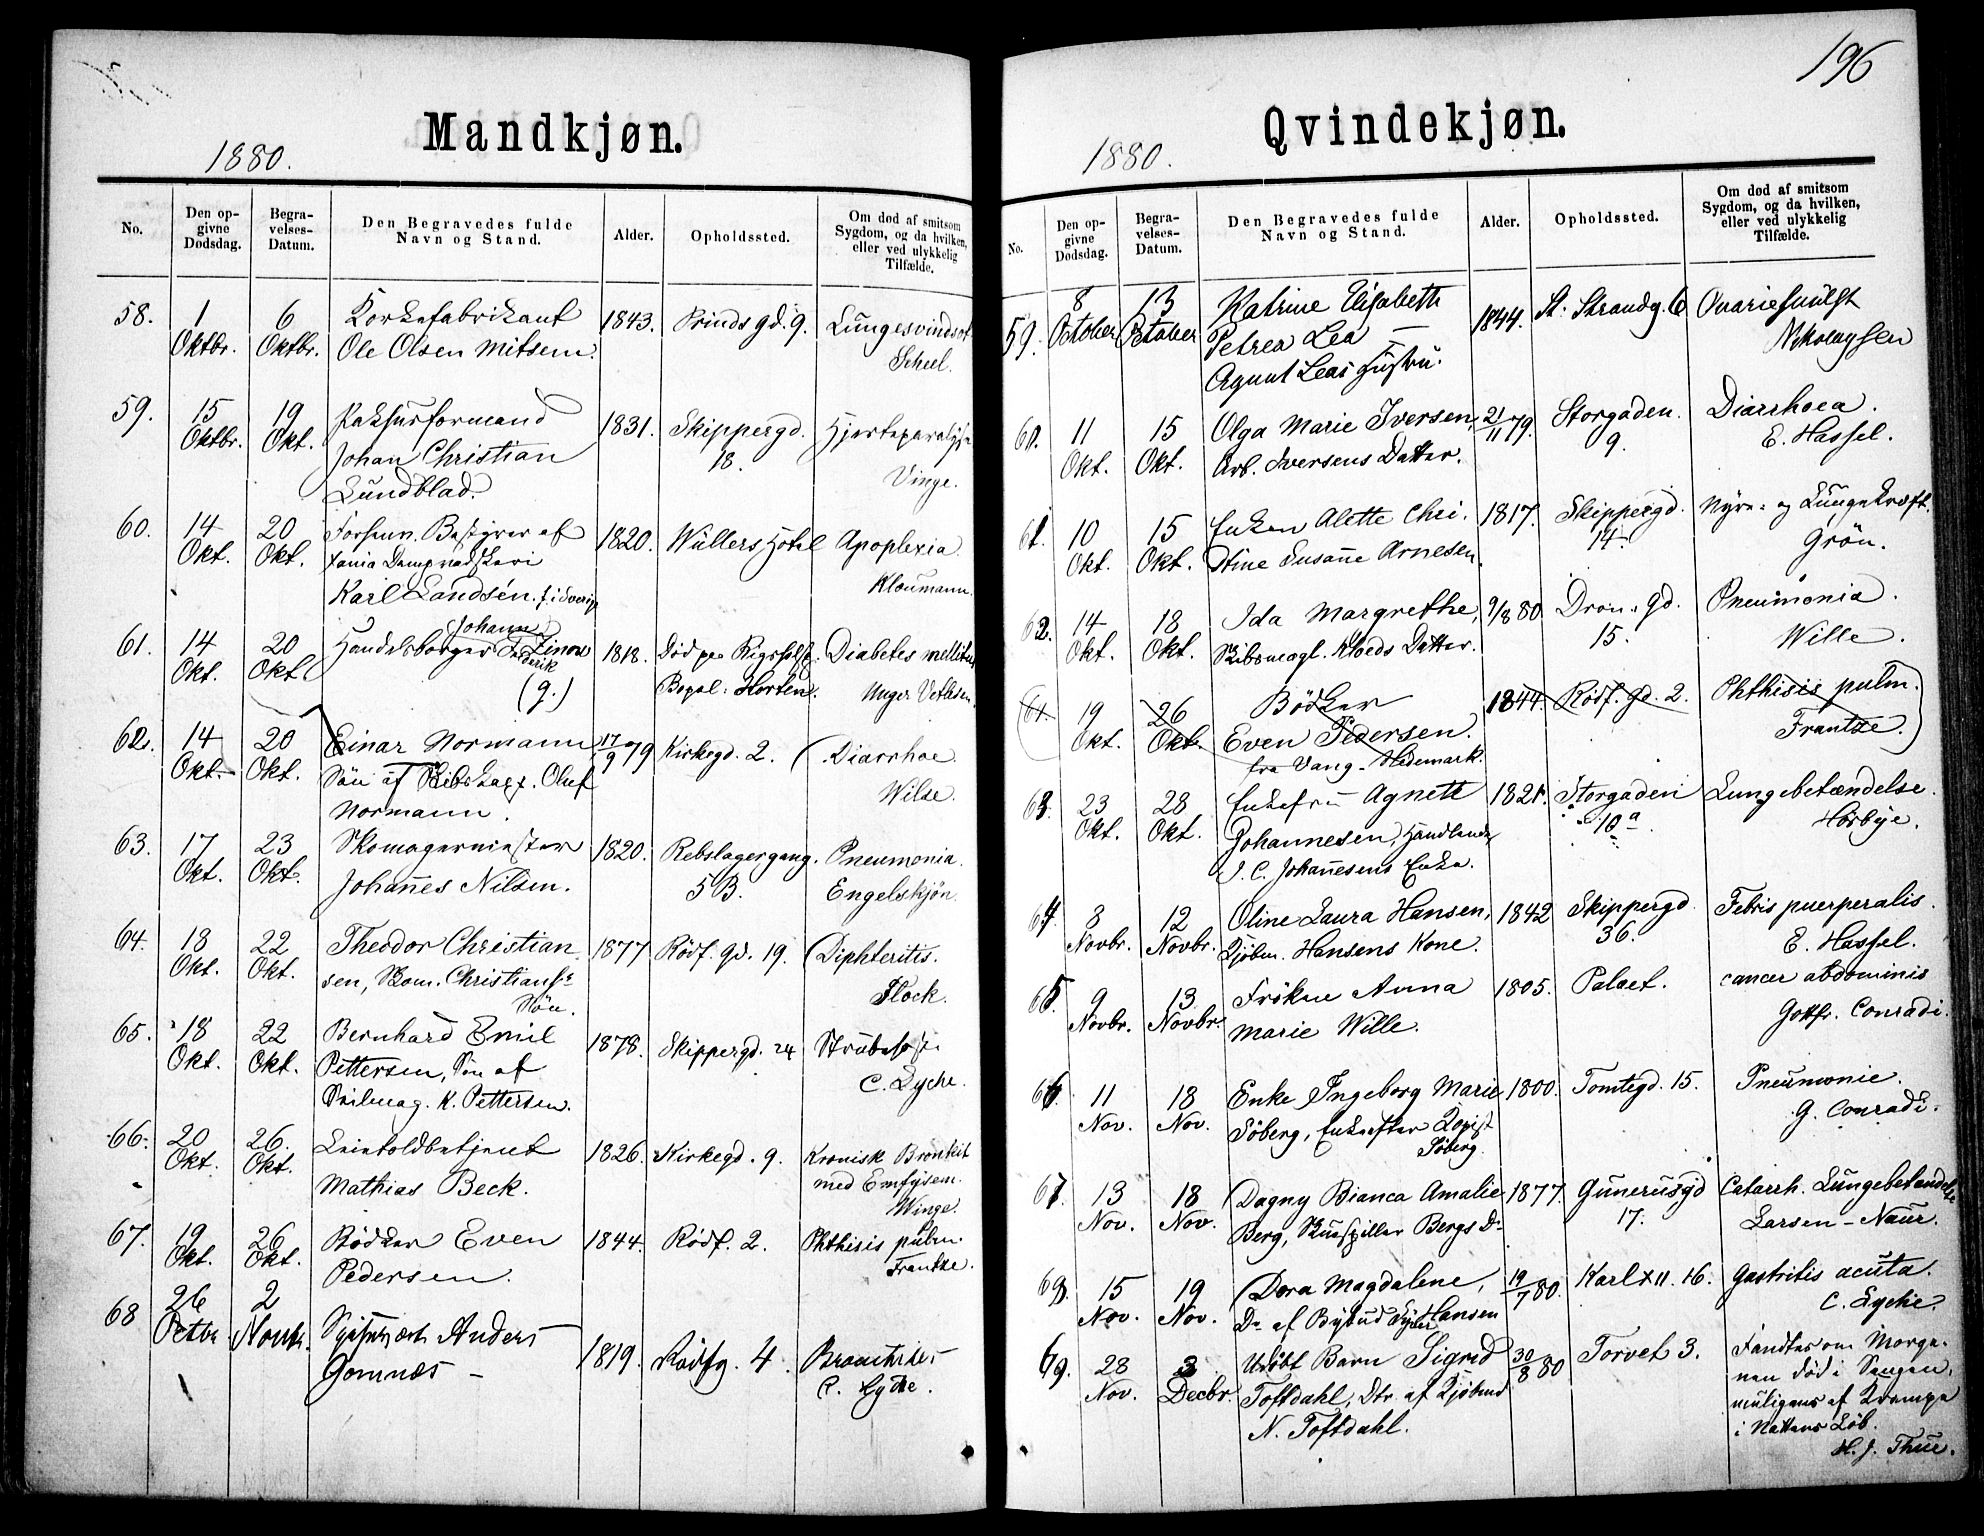 196
Mandkjøn.
1880.
No.
Den op-
givne
Dødsdag.
Begra-
velses-
Datum.
Den Begravedes fulde
Navn og Stand.
Alder.
Opholdssted.
Om død af smitsom
Sygdom, og da hvilken,
eller ved ulykkelig
Tilfælde.
58. 1 6 Korkefabrikant 1843. Prindsgd. 9. Lungesvindsot
Oktbr. Oktbr. Ole Olsen
Scheel.
59. 15 19 Pakhusformand 1831. Skippergd. Hjerteparalyse
Oktbr. Okt. Johan Christian 18.
Vinge.
Lundblad.
60. 14 20 1820. Wüllers Hotel Apoplexia.
Okt. Okt.
Karl Landsén. Kloumann.
61. 14 20 Handelsborger Johann 1818. Død paa Rigshosp. Diabetes mellitus
Okt. Okt Frederik
(g.) Bopæl: Horten. Unger Vetlesen.
62. 14 20 Einar Normann 17/9 79 Kirkegd. 2. Diarrhoe
Okt. Okt. Søn af Skibskapt. Oluf
Wilse.
Normann.
63. 17 23 Skomagermester 1820. Rebslagergang. Pneumonia.
Okt. Okt. Johannes Nilsen. 5 B. Engelskjön.
64. 18 22 Theodor Christian 1877 Rödf. gd. 19. Diphteritis.
Okt. Okt. sen, Skom. Christians
Søn. Flock.
65. 18 22 Bernhard Emil 1878. Skippergd. 24 Strubehoste
Okt. Okt. Pettersen, Søn af
C. Lyche.
Seilmag. K. Pettersen.
66. 20 26. 1826. Kirkegd. 9. Kronisk Bronkit
Okt. Okt. Mathias Beck. med Emfysem.
Winge.
67. 19 26 Bödker Even 1844. Rödf. 2. Phthisis pulm.
Okt. Okt. Pedersen. Frantze.
68 26 2 Anders 1819. Rödfg. 4.
Gomnæs C. Lyche.
Qvindekjøn.
1880.
No.
Den op-
givne
Dødsdag.
Begra-
velses-
Datum.
Den Begravedes fulde
Navn og Stand.
Alder.
Opholdssted.
Om død af smitsom
Sygdom, og da hvilken,
eller ved ulykkelig
Tilfælde.
59. 8 13 Katrine Elisabeth 1844. St. Strandg. 6 Ovariesvulst
October October Petrea Lea
Nikolaysen
Agent Leas Hustru.
60. 11 15 Olga Marie Iversen, 21/11 79. Storgaden. Diarrhoea.
Okt. Okt. Arb. Iversens Datter. 9. E. Hassel.
61. 10 15 Enken Alette Chri. 1817. Skippergd. Nyre- og Lungekræft.
Okt. Okt. stine Susanne Arnesen. 14. Grön.
62. 14 18 Ida Margrethe, 9/8 80. Dron. gd. Pneumonia.
Okt. Okt. Skibsmægl. Kloeds Datter. 15. Wille.
19 26 Bödker 1844. Rödf. gd. 2. Phthisis pulm.
Okt. Okt. Even Pedersen. Frantze.
fra Vang. Hedemark.
63. 23 28 Enkefru Agnete 1821. Storgaden Lungebetændelse.
Okt. Okt. Johannesen, Handlende 10a. Hörbye.
J. C. Johannesens Enke.
64 8 12 Oline Laura Hansen, 1842 Skippergd. Febris puerperalis.
Novbr. Novbr. Kjøbm. Hansens Kone. 36. E. Hassel.
65. 9 13 Frøken Anna 1805. Palæet. cancer abdominis
Novbr. Novbr. Marie Wille. Gottfr. Conradi.
66. 11 18 Enke Ingeborg Marie 1800. Tomtegd. 15. Pneumonie.
Nov. Nov. Söberg, Enke efter
Söberg. G. Conradi.
67. 13 18 Dagny Bianca Amalie 1877. Gunerusgd Catarrh. Lungebetændelse
Nov. Nov. Berg, Skuespiller Bergs D. 17. Larsen-Naur.
68. 15 19 Dora Magdalene, 19/7 80. Karl XII. 16. Gastritis acuta.
Nov. Nov. D. af Bybud Hansen C. Lyche.
69. 28 3 Udöbt Barn Sigrid 30/8 80 Torvet 3. Fandtes om Morge-
Nov. Decbr. Toftdahl, Dtr. af Kjöbmd nen död i Sengen,
N. Toftdahl. muligens af Krampe
i Nattens Löb.
H. J. Thue.